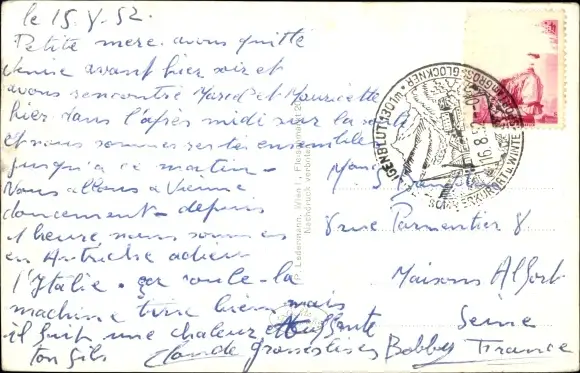 le 15.8.52.
Petite mere. avons quitté
Venise avant hier soir et
avons rencontré Marcel et Mauricette
hier dans l'après midi sur la route
et nous sommes restés ensemble
jusqu'à ce matin -
Nous allons a Vienne
doucement - depuis
1 heure, nous sommes
en Autriche adieu
l'Italie. ça roule - la
machine tire bien mais
il fait une chaleur étouffante
ton fils Claude grosses bises Bobby
HEILIGENBLUT
GROSS-GLOCKNER
16.8.52
SOMMERKURORT u. WINTER
P. Ledermann, Wien I
Nachdruck verboten
8 rue Parmentier 8.
Maisons Alfort
Seine
France